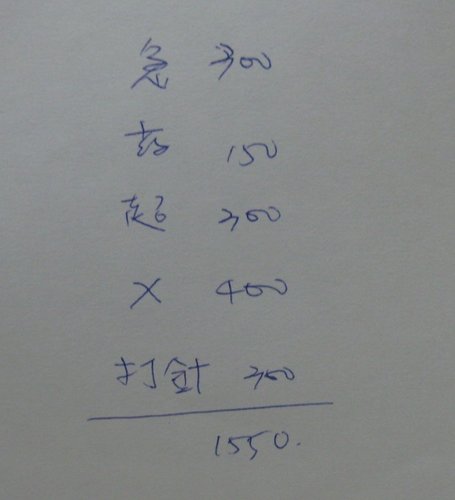 急 300
150
超 300
X 400
打針 300
1550.